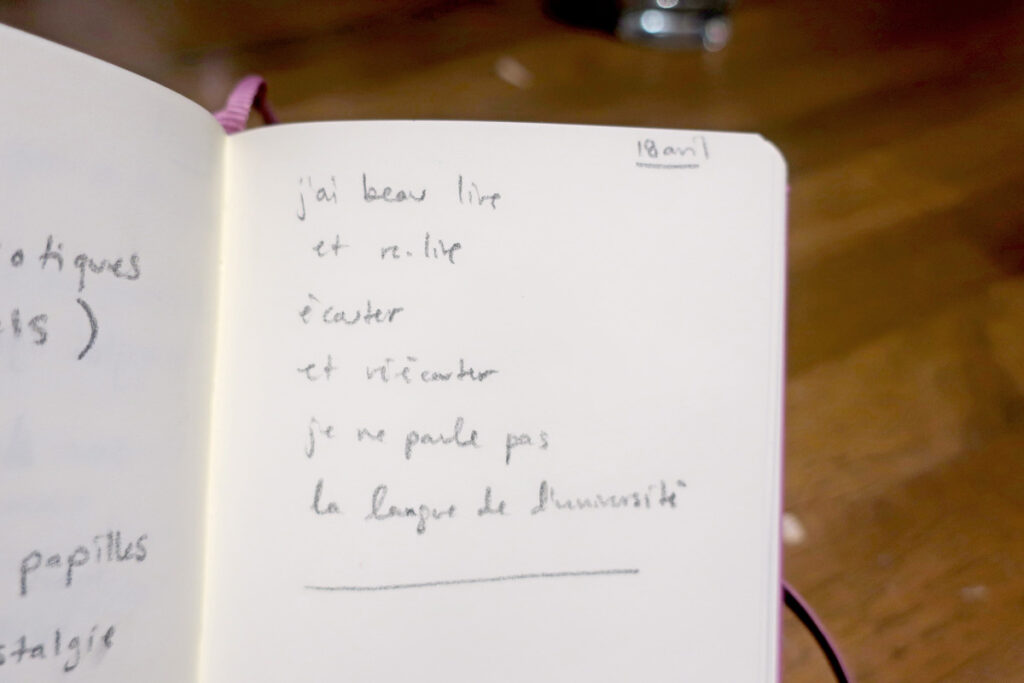 otiques
)
papilles
stalgie
18 avril
j'ai beau lire
et re-lire
écouter
et réécouter
je ne parle pas
la langue de l'université